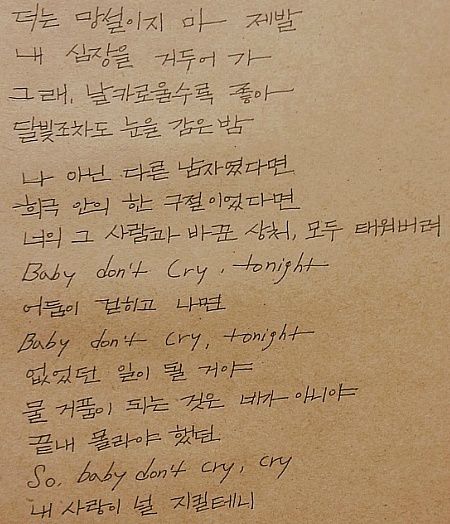 더는 망설이지 마 제발
내 심장을 거두어 가
그래, 날카로울수록 좋아
달빛조차도 눈을 감은 밤
나 아닌 다른 남자였다면
희극 안의 한 구절이었다면
너의 그 사랑과 바꾼 상처, 모두 태워버려
Baby don't Cry, tonight
어둠이 걷히고 나면
Baby don't cry, tonight
없었던 일이 될 거야
물거품이 되는 것은 네가 아니야
끝내 몰라야 했던
So, baby don't cry, cry
내 사랑이 널 지킬테니